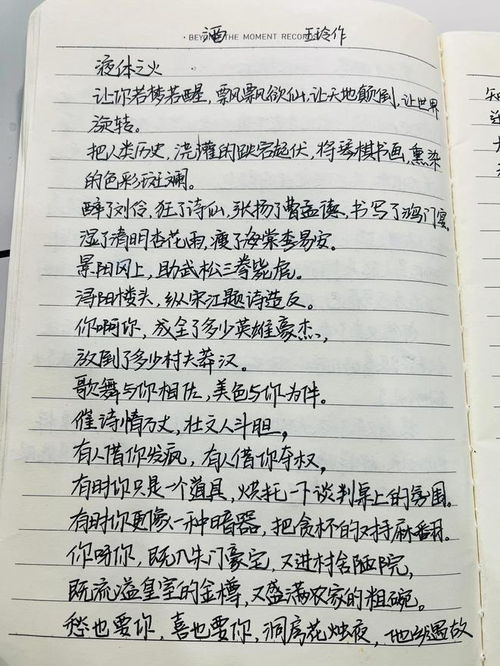 · BEYOND THE MOMENT RECORD
酒 王玲作
液体之火
让你若梦若醒,飘飘欲仙,让天地颠倒,让世界
旋转。
把人类历史,浇灌的跌宕起伏,将琴棋书画,熏染
的色彩斑斓。
醉了刘伶,狂了诗仙,张扬了曹孟德,书写了鸿门宴。
湿了清明杏花雨,瘦了海棠李易安。
景阳冈上,助武松三拳毙虎。
浔阳楼头,纵宋江题诗造反。
你啊你,成全了多少英雄豪杰,
放倒了多少村夫莽汉。
歌舞与你相伍,美色与你为伴。
催诗情万丈,壮文人斗胆,
有人借你发疯,有人借你夺权,
有时你只是一个道具,烘托一下谈判桌上的氛围。
有时你更像一种暗器,把贪杯的对手麻翻。
你啊你,既入朱门豪宅,又进村舍陋院,
既流溢皇室的金樽,又盛满农家的粗碗。
愁也要你,喜也要你,洞房花烛夜,他乡遇故